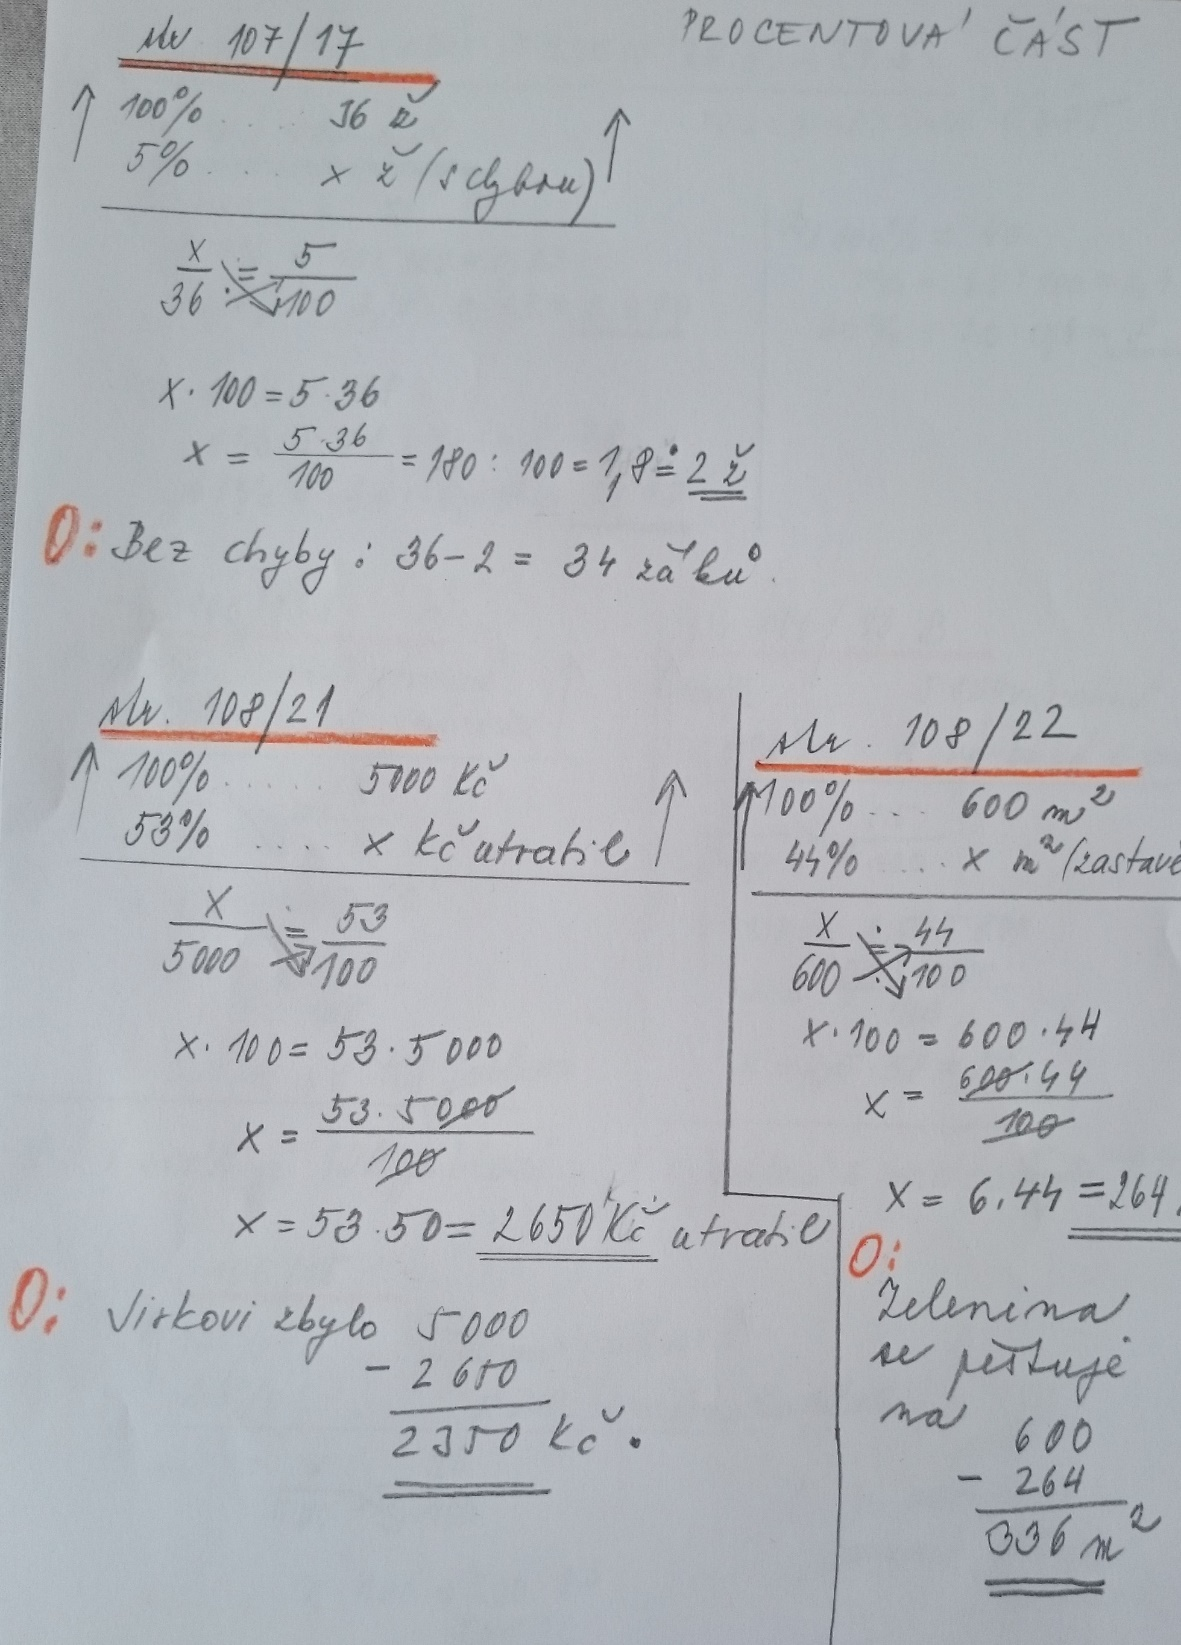 PROCENTOVÁ ČÁST
str. 107/17
100% .... 36 ž
5% .... x ž (s chybou)
x/36 = 5/100
x · 100 = 5 · 36
x = 5·36/100 = 180 : 100 = 1,8 ≐ 2 ž
O: Bez chyby : 36 - 2 = 34 žáků.
str. 108/21
100% ..... 5000 Kč
53% .... x Kč utratil
x/5000 = 53/100
x · 100 = 53 · 5000
x = 53 · 5000/100
x = 53 · 50 = 2650 Kč utratil
O: Jirkovi zbylo 5000
- 2650
2350 Kč.
str. 108/22
100% .... 600 m²
44% .... x m² (zastavě
x/600 = 44/100
x · 100 = 600 · 44
x = 600 · 44/100
x = 6 · 44 = 264
O:
Zelenina
se pěstuje
na
600
- 264
336 m²